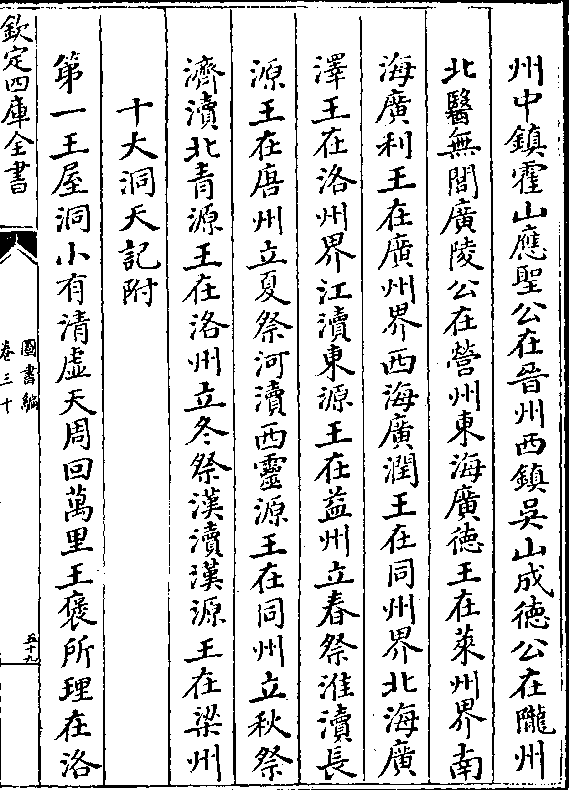 州中鎮霍山應聖公在晉州西鎮吳山成德公在隴州
北醫無閭廣陵公在營州東海廣德王在萊州界南
海廣利王在廣州界西海廣潤王在同州界北海廣
澤王在洛州界江瀆東源王在益州立春祭淮瀆長
源王在唐州立夏祭河瀆西靈源王在同州立秋祭
濟瀆北青源王在洛州立冬祭漢瀆漢源王在梁州
十大洞天記附
第一王屋洞小有清虛天周回萬里王褒所理在洛
欽定四庫全書
圖書編
卷三十
五十九